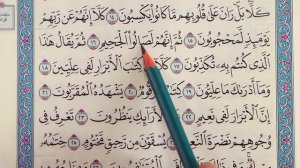 كَلَّا بَلْ رَانَ عَلَىٰ قُلُوبِهِم مَّا كَانُوا يَكْسِبُونَ ١٤ كَلَّا إِنَّهُمْ عَن رَّبِّهِمْ
يَوْمَئِذٍ لَّمَحْجُوبُونَ ١٥ ثُمَّ إِنَّهُمْ لَصَالُوا الْجَحِيمِ ١٦ ثُمَّ يُقَالُ هَٰذَا
الَّذِي كُنتُم بِهِ تُكَذِّبُونَ ١٧ كَلَّا كِتَٰبَ الْأَبْرَارِ لَفِي عِلِّيِّينَ ١٨
وَمَا أَدْرَىٰكَ مَا عِلِّيُّونَ ١٩ يَشْهَدُهُ الْمُقَرَّبُونَ ٢١
إِنَّ الْأَبْرَارَ لَفِي نَعِيمٍ ٢٢ الْأَرَائِكِ يَنظُرُونَ ٢٣ تَعْرِفُ فِي
وُجُوهِهِمْ نَضْرَةَ يُسْقَوْنَ مِن رَّحِيقٍ مَّخْتُومٍ ٢٥ خِتَٰمُهُ